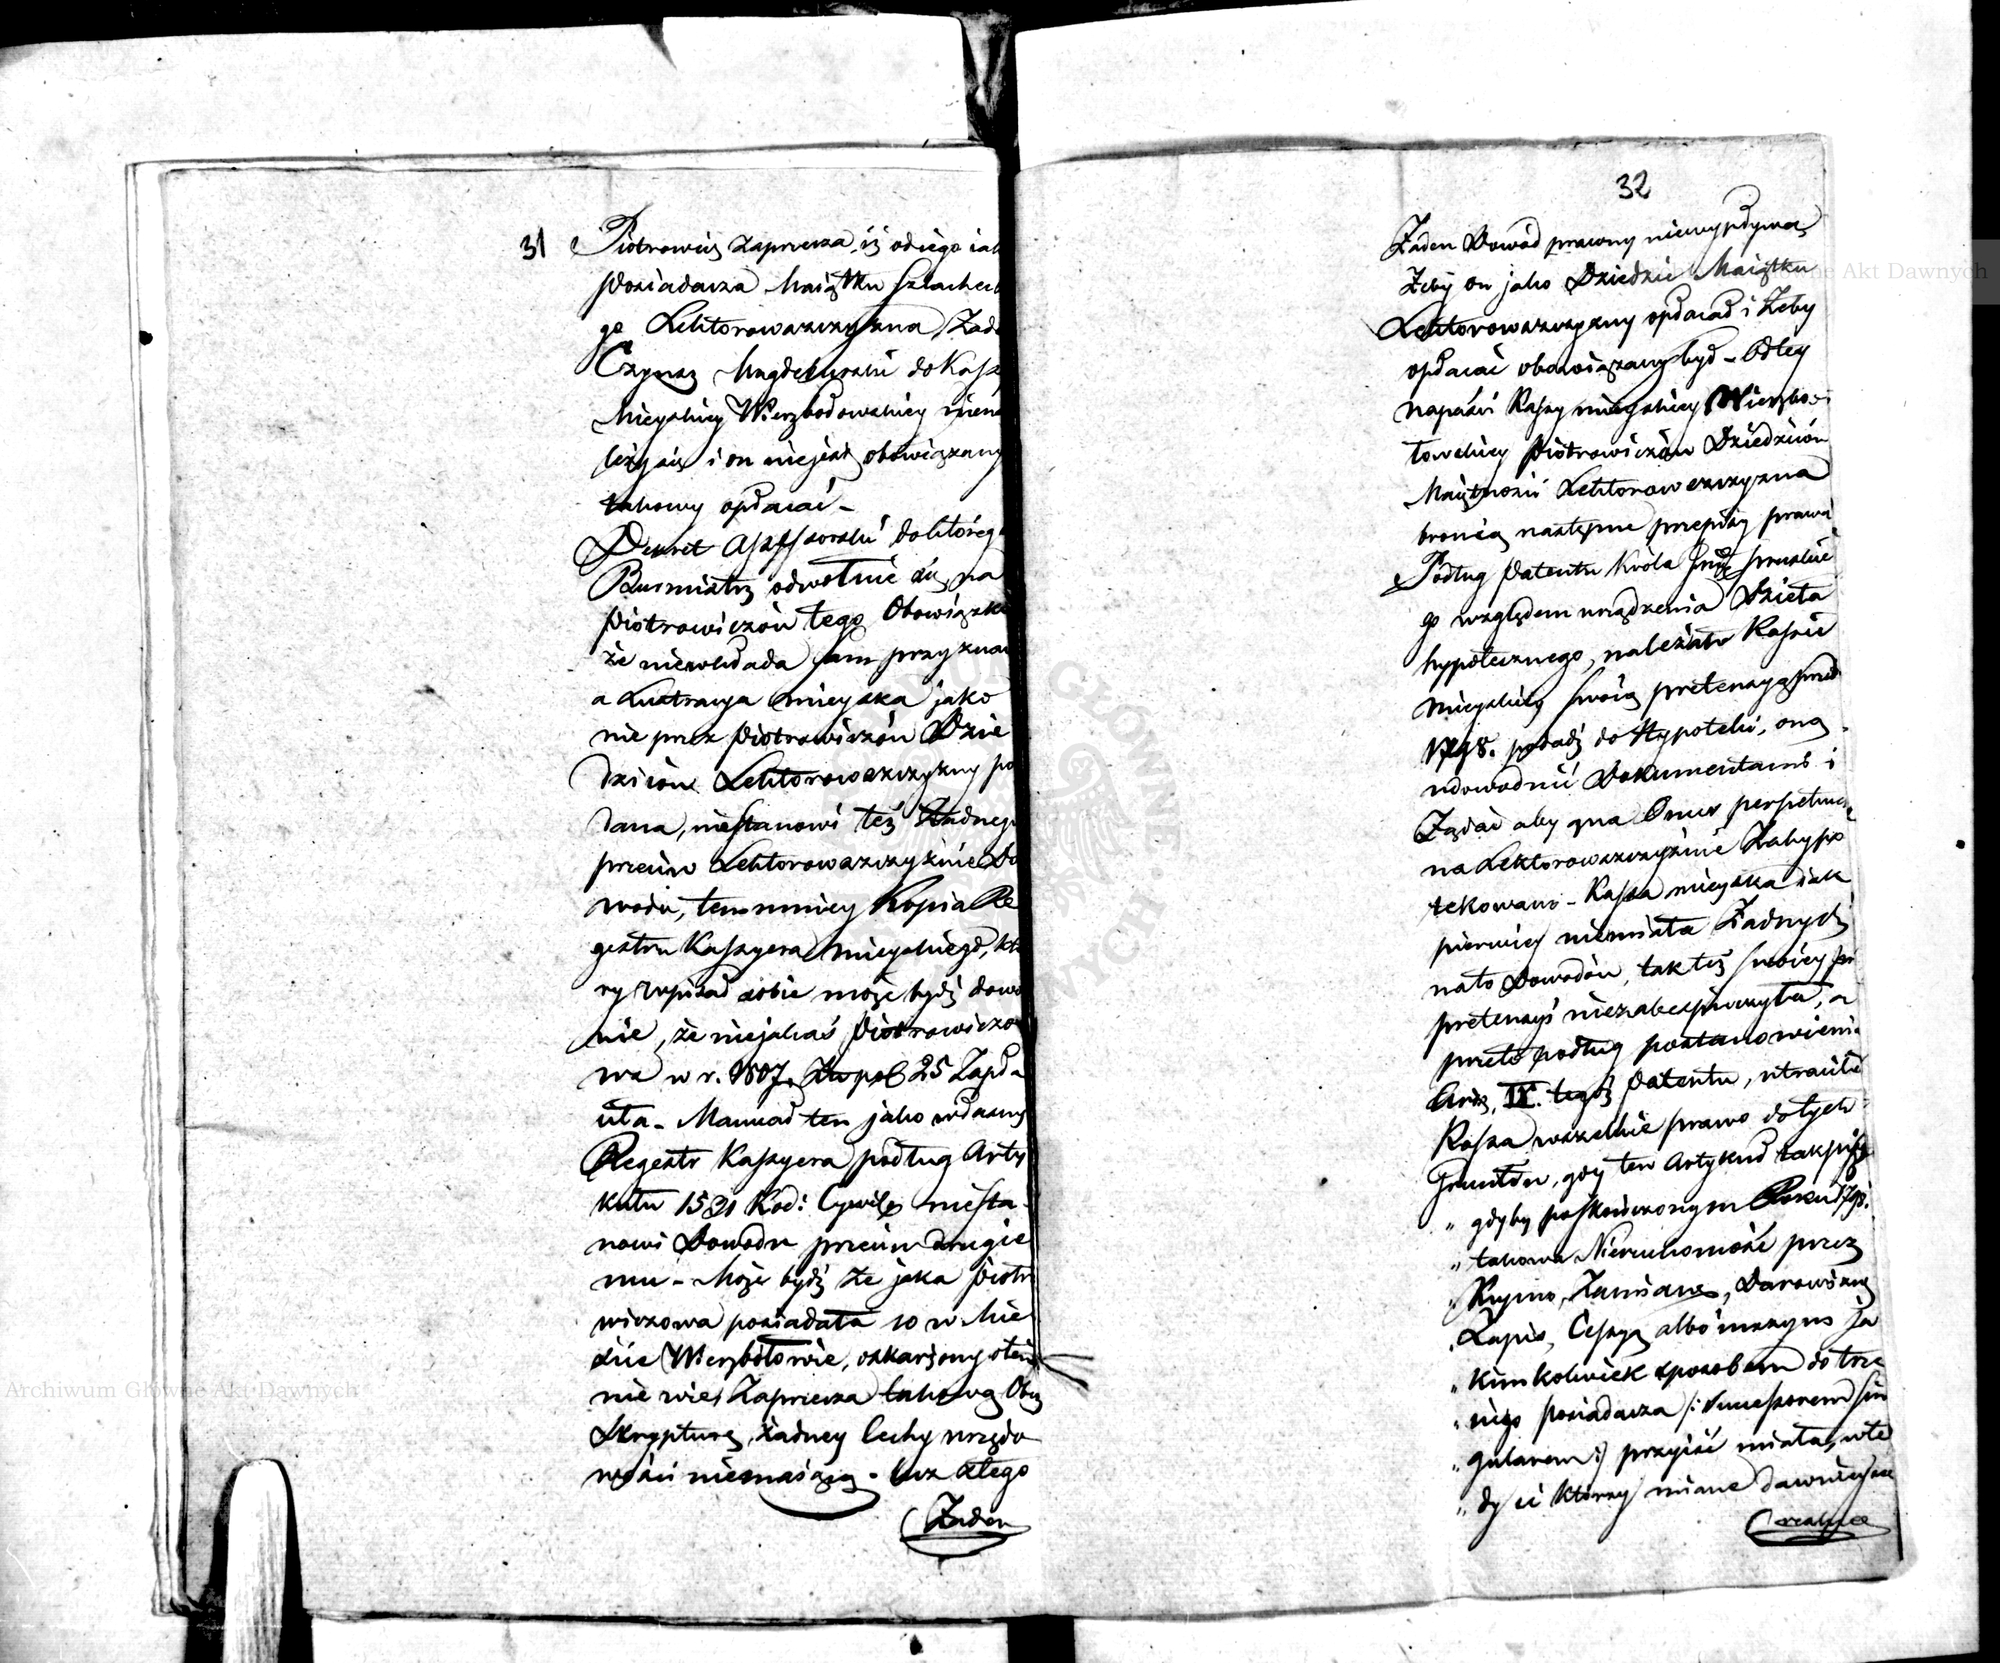 31
Piotrowicz zaprzecza, iż od iego iak
Posiadacza Maiątku Szlachec
go Lektorowszczyzna Żade
Czynsz Magdeburski do Kassy
Mieyskiey Wierzbołowskiey niena
leży się i on niejest obowiązany
takowy opłacać –
Dekret Assessorski do którego
Burmistrz odwołuie się, na
Piotrowiczów tego Obowiązku
że niewkłada sam przyznał
a Lustracya mieyska jako
nie przez Piotrowiczów Dzie
dziców Lektorowszczyzny po
dana, niestanowi też Żadnego
przeciw Lektorowszczyźnie Do
wodu, tem mniey Kopia Re
gestru Kassyera mieyskiego, któ
ry wpisał sobie może bydź dowo
nie, że niejakaś Piotrowiczo
wa w r. 1807. Zło pol 25 Zapła
ciła – Manuał ten jako własny
Regestr Kassyera podług Arty
kułu 1331 Kod: Cywil niesta
nowi Dowodu przeciw drugie
mu – Może bydź że jaka Piotro
wiczowa posiadała co w Mie
ście Wierzbołowie, oskarżony o tem
nie wie, Zaprzecza takową Ob
Skrypturę, żadney Cechy urzędo
wości niemaiącą – bez tego
Żaden
32
Żaden Dowód prawny niewypływa,
Żeby on jako Dziedzic Maiątku
Lektorowszczyzny opłacał i Żeby
opłacać obowiązany był – Od tey
napaści Kassy mieyskiey Wierzbo-
łowskiey Piotrowiczów Dziedziców
Maiętności Lektorowszczyzna
bronią następne przepisy prawa
Podług Patentu Króla Pruskie
go względem urządzenia Dzieła
hypotecznego, należało Kassie
mieyskiey swoią pretensyą przed
1798. podać do Hypoteki, oną
udowodnić Dokumentami i
Żądać aby qua Onus perpetuum
na Lektorowszczyźnie Zahypo
tekowano – Kassa mieyska iak
pierwiey niemiała Żadnych
na to Dowodów, tak też swoiey
pretensyi niezabezpieczyła, a
przeto podług postanowienia
Art. IX. tegoż Patentu, utraciła
Kassa wszelkie prawo do tych
Gruntów, gdy ten Artykuł tak pisze
„ gdyby po skończonym Roku 1798.
„ takowa Nieruchomość przez
„ Kupno, Zamianę, Darowiznę
„ Zapis, Cessyą albo innym ja
„ kimkolwiek sposobem do trze
„ ciego posiadacza /: Successorem Sin
„ gularem :/ przeyść miała, wte
„ dy ci którzy miane dawnieysze
realne
Archiwum Główne Akt Dawnych